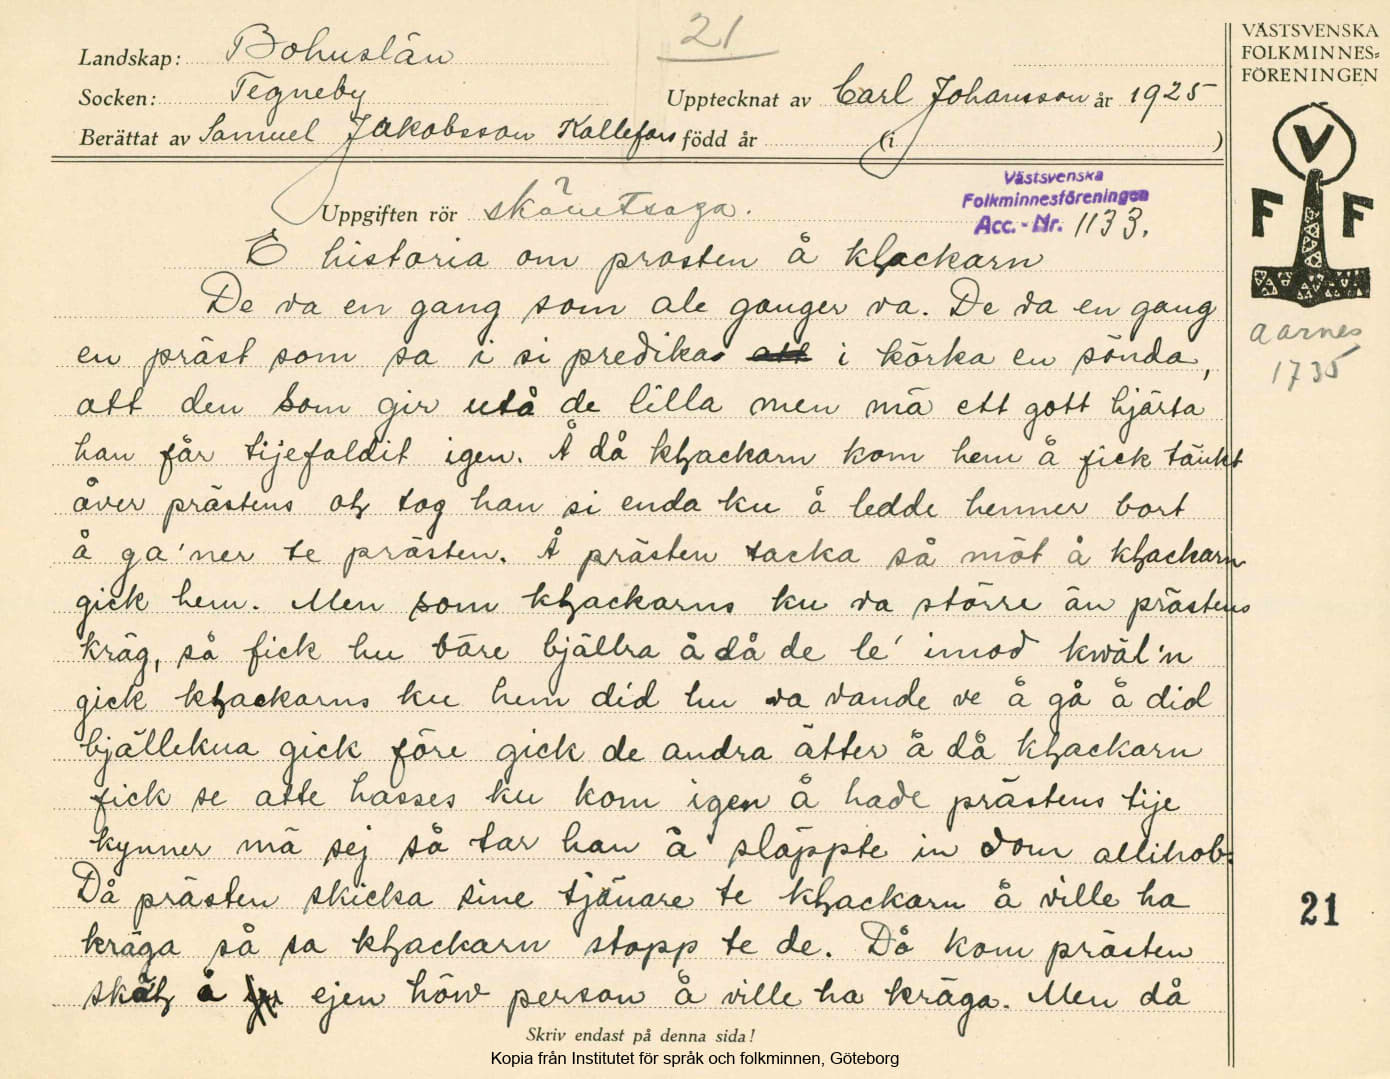 21
VÄSTSVENSKA
FOLKMINNES-
FÖRENINGEN
Landskap: Bohuslän
Socken: Tegneby
Upptecknat av Carl Johansson år 1925
Berättat av Samuel Jakobsson Kallefors född år (i )
V
F F
Västsvenska
Folkminnesföreningen
Acc.-Nr. 1133.
Uppgiften rör skämtsaga.
E historia om prosten å kḷackarn
De va en gang som ale ganger va. De va en gang
en präst som sa i si predika i körka en sönda,
att den som gir utå de lilla men mä ett gott hjärta
han får tijefaldit igen. Å då kḷackarn kom hem å fick tänkt
åver prästens oḷ tog han si enda ku å ledde henner bort
å ga'ner te prästen. Å prästen tacka så möt å kḷackarn
gick hem. Men som kḷackarns ku va större än prästens
kräg, så fick hu bäre bjällra å då de le' imod kwäl'n
gick kḷackarns ku hem did hu va vande ve å gå å did
bjällekua gick före gick de andra ätter å då kḷackarn
fick se atte hasses ku kom igen å hade prästens tije
kynner mä sej så tar han å släppte in dom allihob:
Då prästen skicka sine tjänare te kḷackarn å ville ha
kräga så sa kḷackarn stopp te de. Då kom prästen
skäḷ å ejen höw person å ville ha kräga. Men då
aarnes
1735
21
Skriv endast på denna sida!
Kopia från Institutet för språk och folkminnen, Göteborg